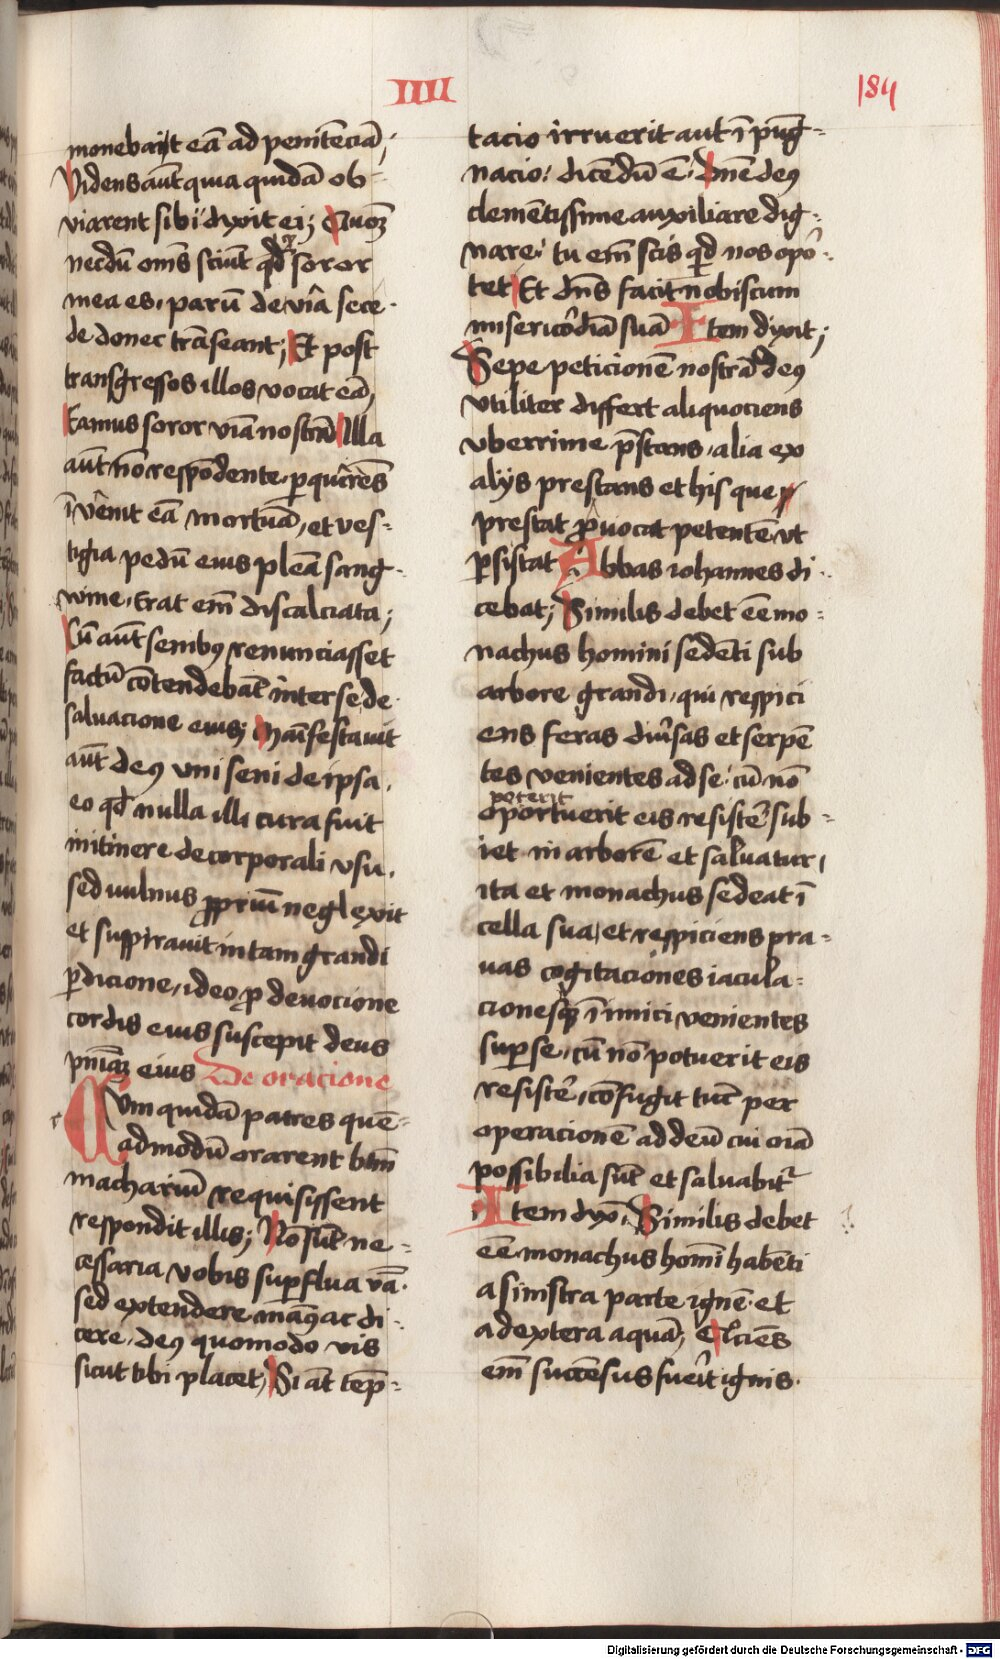 IIII
184
monebat eā ad penitēciā;
Videns aūt quia quidā ob-
viarent sibi dixit ei; Quoꝫ
necdū om̄s sciūt qd soror
mea es, parū de via sece-
de donec trāseant; Et post
transgressos illos vocat eā,
Eamus soror viā nostrā Illa
aūt nō respōdente, ꝑquirēs
īvēnit eā mortuā, et ves-
tigia pedū eius plēa sang-
wine, Erat em̄ discalciata;
Cū aūt senibꝰ renunciasset
factū cōtendebāt inter se de
saluacione eius; Manifestauit
aūt deꝰ vni seni de ipsa,
eo qd nulla illi cura fuit
in itinere de corporali vsu,
sed vulnus ꝓpriū neglexit
et suspirauit in tam grandi
ꝑdicione, ideo ꝓ deuocione
cordis eius suscepit deus
pn̄iaꝫ eius De oracione
Cvm quidā patres quē-
admodū orarent btm̄
machariū requisissent
respondit illis; Nō sūt ne-
cessaria vobis suꝑflua v̄ā.
sed extendere manꝰ ac di-
cere, deꝰ quomodo vis
sicut tibi placet, Si aūt tēp-
tacio irruerit aut īpūg-
nacio: dicēdū ē: Dn̄e deꝰ
clemētissime auxiliare dig-
nare: tu em̄ scis qd nos opor-
tet Et dn̄s facit nobiscum
misericordiā suā Item dixit;
Sepe peticionē nostrā deꝰ
vtiliter differt aliquociens
vberrime p̄stans, alia ex
alijs prestans et his que
prestat ꝓuocat petentē vt
ꝑsistat Abbas iohannes di-
cebat; Similis debet ēe mo-
nachus homini sedēti sub
arbore grandi, qui respici
ens feras diūsas et serpē
tes venientes ad se: cū nō
poterit
oportuerit eis resistē sub-
iet in arborē et saluatur,
ita et monachus sedeat ī
cella sua, et respiciens pra-
uas cogitaciones iacula-
cionesqꝫ īimici venientes
suꝑ se, cū nō potuerit eis
resistē, cōfugit tūc per
operacionē ad deū cui oīa
possibilia sūt et saluabit᷑
Item dyx, Similis debet
ēe monachus homī habēti
a sinistra parte ignē et
a dextera aquā; Quociēs
em̄ succēsus fuerit ignis.
Digitalisierung gefördert durch die Deutsche Forschungsgemeinschaft - DFG